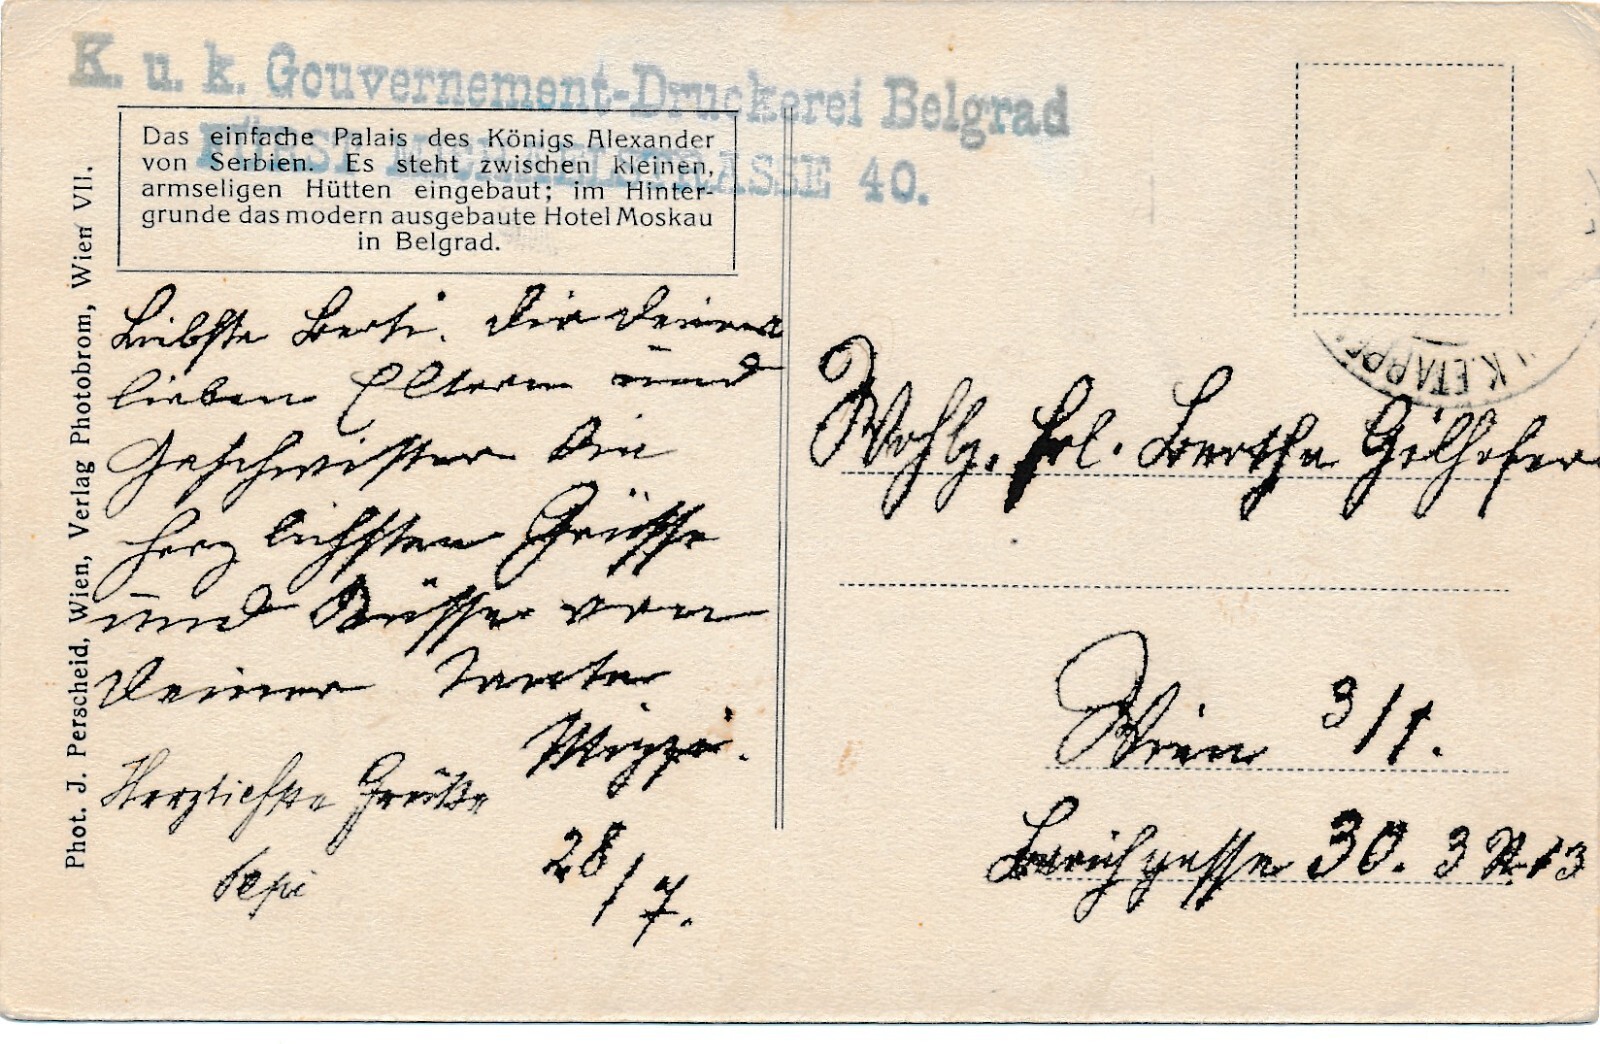 K. u. k. Gouvernement-Druckerei Belgrad
FÜRST MICHAELSTRASSE 40.
Das einfache Palais des Königs Alexander
von Serbien. Es steht zwischen kleinen,
armseligen Hütten eingebaut; im Hinter-
grunde das modern ausgebaute Hotel Moskau
in Belgrad.
Phot. J. Perscheid, Wien, Verlag Photobrom, Wien VII.
Liebste Berti. Dir deinen
lieben Eltern und
Geschwister die
herzlichsten Grüsse
und Küsse von
deiner Tante
Mizzi.
Herzlichste Grüße
Pepi
28/7.
K.u.K. ETAPPE
Wohlg. Frl. Bertha Gilhofer
Wien 3/1.
30. 3 St. 13